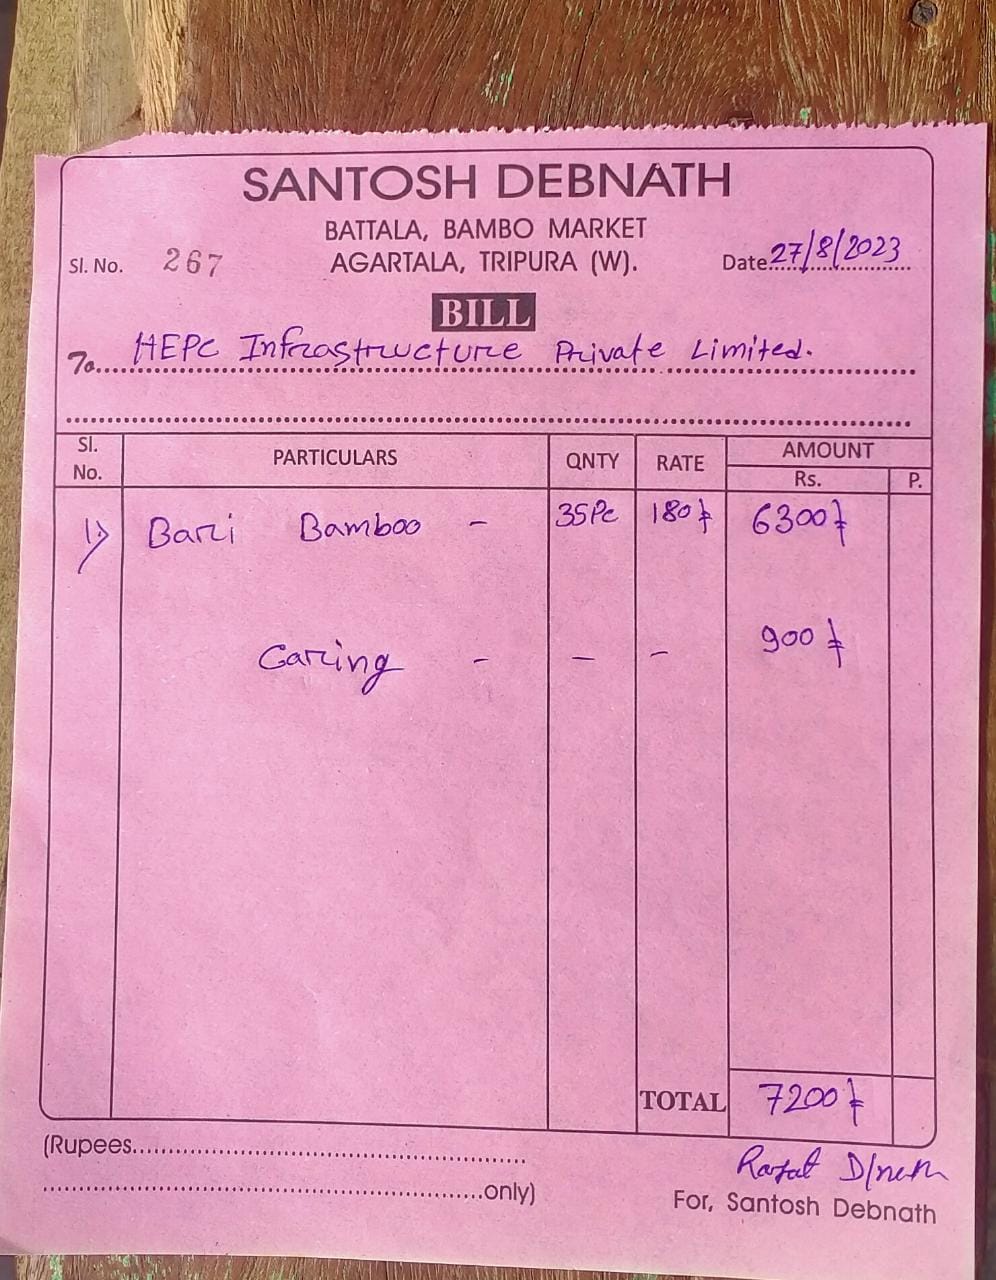 SANTOSH DEBNATH
BATTALA, BAMBO MARKET
Sl. No. 267 AGARTALA, TRIPURA (W). Date 27/8/2023
BILL
To HEPC Infrastructure Private Limited.
Sl. No. PARTICULARS QNTY RATE AMOUNT
Rs. P.
1) Bari Bamboo - 35Pc 180/- 6300/-
Caring - - - 900/-
TOTAL 7200/-
(Rupees
only)
For, Santosh Debnath